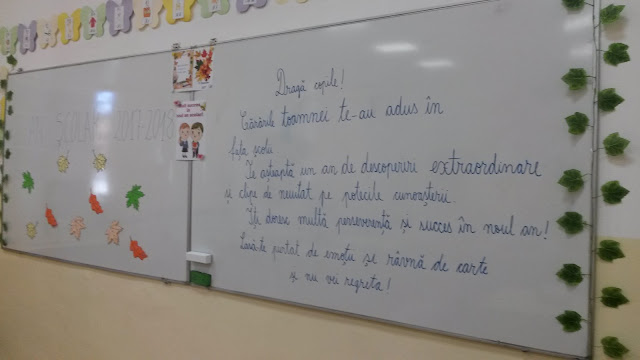 ANUL ȘCOLAR 2017-2018
Dragă copile!
Cărările toamnei te-au adus în
fața școlii.
Te așteaptă un an de descoperiri extraordinare
și clipe de neuitat pe potecile cunoașterii.
Îți doresc multă perseverență și succes în noul an!
Lasă-te purtat de emoții și râvnă de carte
și nu vei regreta!